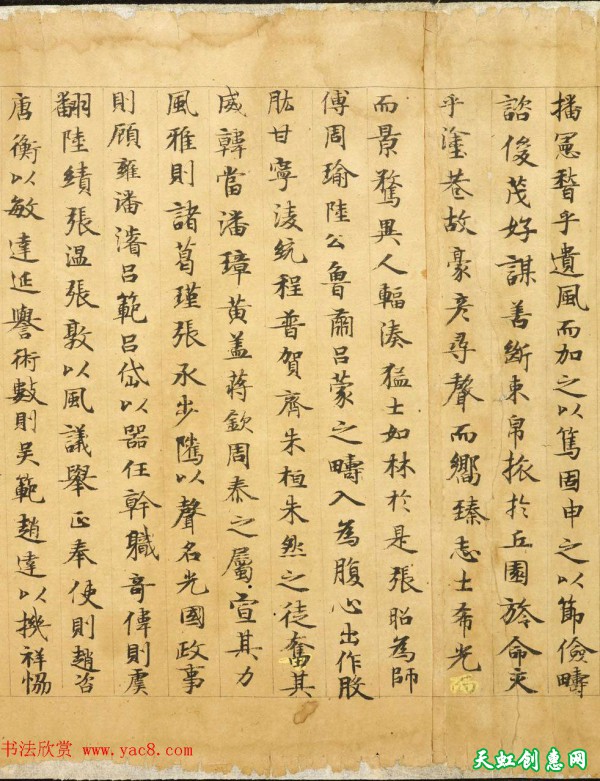 播憲稽乎遺風而加之以篤固申之以節儉疇
諮俊茂好謀善斷束帛旅於丘園旌命交
乎塗巷故豪彦尋聲而嚮臻志士希光而
而景騖異人輻湊猛士如林於是張昭為師
傅周瑜陸公魯肅呂蒙之疇入為腹心出作股
肱甘寧淩統程普賀齊朱桓朱然之徒奮其
威韓當潘璋黃盖蔣欽周泰之屬宣其力
風雅則諸葛瑾張承步騭以聲名光國政事
則顧雍潘濬呂範呂岱以器任幹職奇偉則虞
翻陸績張温張敦以風議舉正奉使則趙咨
唐衡以敏達延譽術數則吴範趙達以機祥恊
书法欣赏 www.yac8.com
天虹创惠网